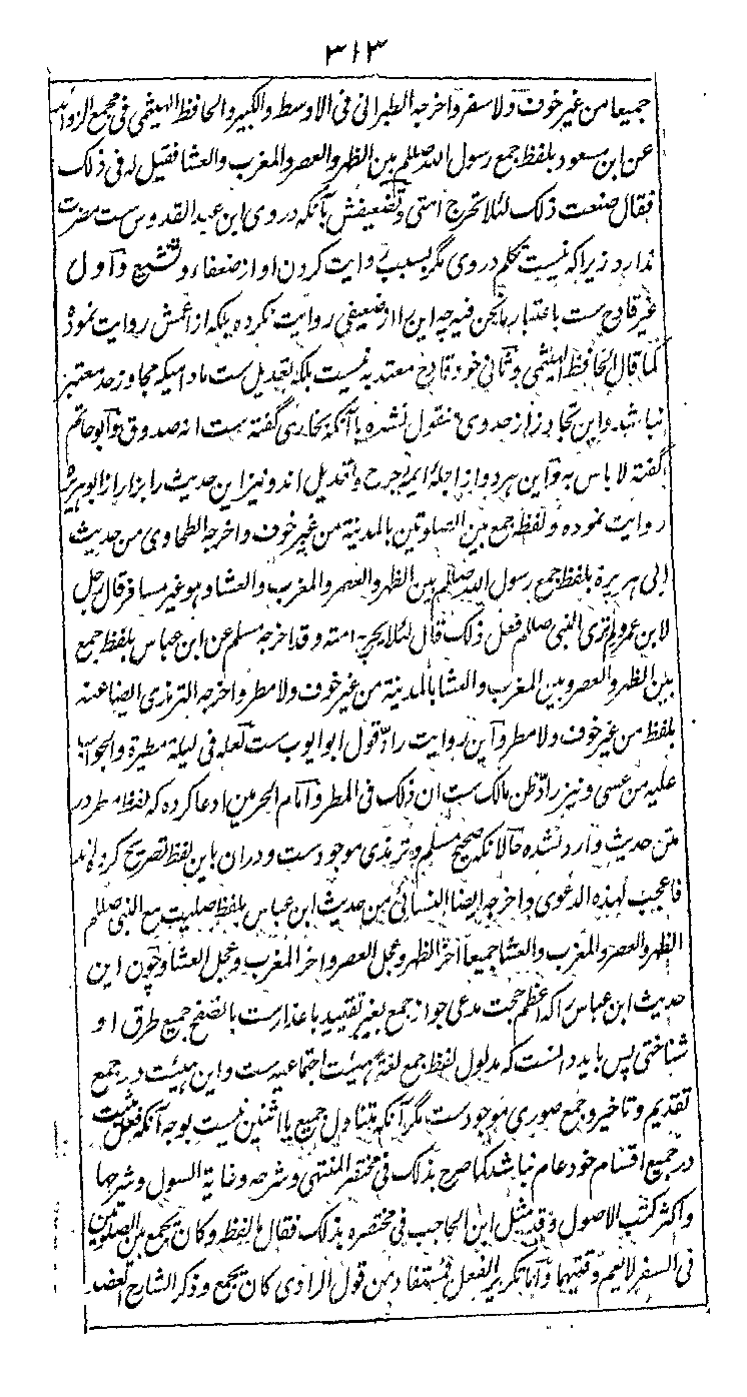 ۳۱۳
جمیعا من غیر خوف ولا سفر و اخرجه الطبرانی فی الاوسط والکبیر والحافظ الهیثمی فی مجمع الزوائد
عن ابن مسعود بلفظ جمع رسول الله صللم بین الظهر والعصر والمغرب والعشا فقیل له فی ذلک
فقال صنعت ذلک لئلا تحرج امتی وتضعیفش بآنکه در وی ابن عبد القدوس ست مضرت
ندارد زیرا که نیست تکلم در وی مگر بسبب روایت کردن او از ضعفاء و تشیع و اول
غیر قادح ست باعتبار ما نحن فیه چه این را از ضعیفی روایت نکرده بلکه از اعمش روایت نموده
کما قال الحافظ الهیثمی و ثانی خود قادح معتد به نیست بلکه تعدیل ست مادامیکه مجاوز حد معتبر
نباشد و این تجاوز از حد وی منقول نشده با آنکه بخاری گفته ست انه صدوق و ابو حاتم
گفته لا باس به و این هر دو از اجلهٔ ایمهٔ جرح و تعدیل اند و نیز این حدیث را بزار از ابو هریره
روایت نموده و لفظ جمع بین الصلوتین بالمدینة من غیر خوف و اخرجه الطحاوی من حدیث
ابی هریرة بلفظ جمع رسول الله صللم بین الظهر والعصر والمغرب والعشا وهو غیر مسافر قال رجل
لابن عمر ولم تری النبی صللم فعل ذلک قال لئلا یحرج امته و قد اخرجه مسلم عن ابن عباس بلفظ جمع
بین الظهر والعصر و بین المغرب والعشا بالمدینة من غیر خوف ولا مطر و اخرجه الترمذی ایضا عنه
بلفظ من غیر خوف ولا مطر و این روایت رادّ قول ابو ایوب ست لعله فی لیلة مطیرة والجواب
علیه من عسی و نیز رادّ ظن مالک ست ان ذلک فی المطر و امام الحرمین ادعا کرده که لفظ مطر در
متن حدیث وارد نشده حالانکه صحیح مسلم و ترمذی موجود ست و دران باین لفظ تصریح کرده اند
فاعجب لهذه الدعوی و اخرجه ایضا النسائی من حدیث ابن عباس بلفظ صلیت مع النبی صللم
الظهر والعصر والمغرب والعشا جمیعا اخر الظهر و عجل العصر و اخر المغرب و عجل العشا و چون این
حدیث ابن عباس را که اعظم حجت مدعی جواز جمع بغیر تقیید باعذار ست بالتفحص جمیع طرق او
شناختی پس باید دانست که مدلول لفظ جمع لغة هیئت اجتماعیه ست و این هیئت در جمع
تقدیم و تاخیر و جمع صوری موجود ست مگر آنکه متناول جمیع یا اثنین نیست بوجه آنکه فعل مثبت
در جمیع اقسام خود عام نباشد کما صرح بذلک فی مختصر المنتهی و شرحه و غایة السول و شرحها
و اکثر کتب الاصول و قد مثل ابن الحاجب فی مختصره بذلک فقال بالفظ و کان یجمع بین الصلوتین
فی السفر لا یعم وقتیهما و اما تکریر الفعل فمستفاد من قول الراوی کان یجمع و ذکر الشارح العضد